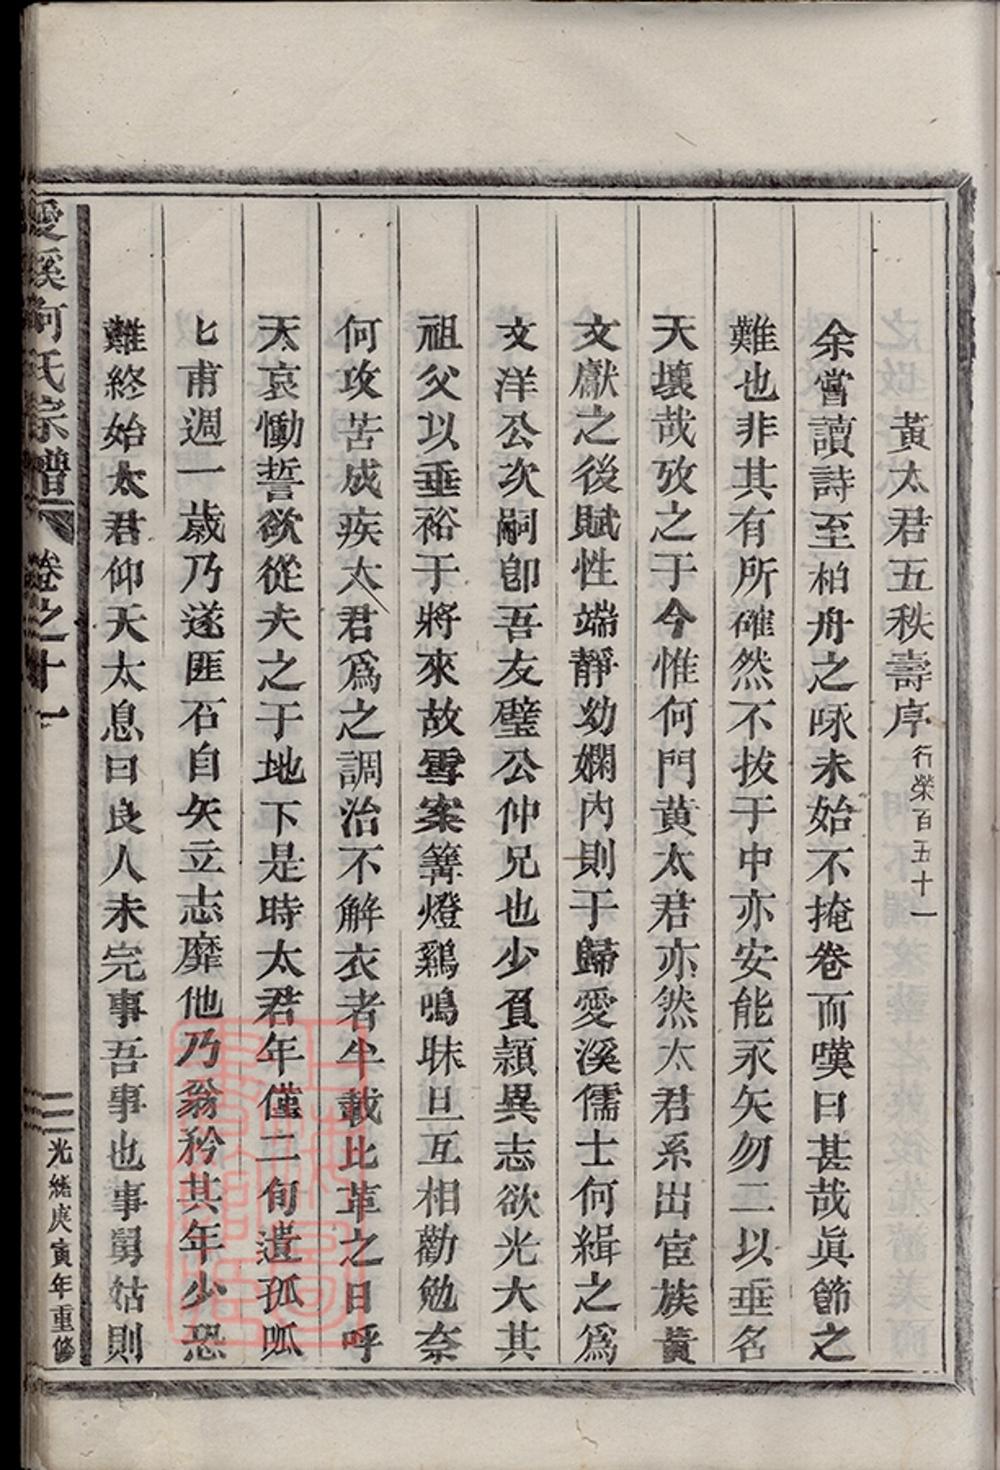 黃太君五秩壽序行榮百五十一
余嘗讀詩至柏舟之咏未始不掩卷而嘆曰甚哉眞節之
難也非其有所確然不拔于中亦安能永矢勿二以垂名
天壤哉攷之于今惟何門黄太君亦然太君系出宦族黃
文獻之後賦性端靜幼嫻内則于歸愛溪儒士何緝之爲
文洋公次嗣卽吾友璧公仲兄也少負頴異志欲光大其
祖父以垂裕于將來故雪案篝燈鷄鳴昧旦互相勸勉奈
何攻苦成疾太君爲之調治不解衣者半載比革之日呼
天哀慟誓欲從夫之于地下是時太君年僅二旬遺孤呱
匕甫週一歲乃遂匪石自矢立志靡他乃翁矜其年少恐
難終始太君仰天太息曰良人未完事吾事也事舅姑則
愛溪何氏宗譜 卷之十一 光緒庚寅年重修